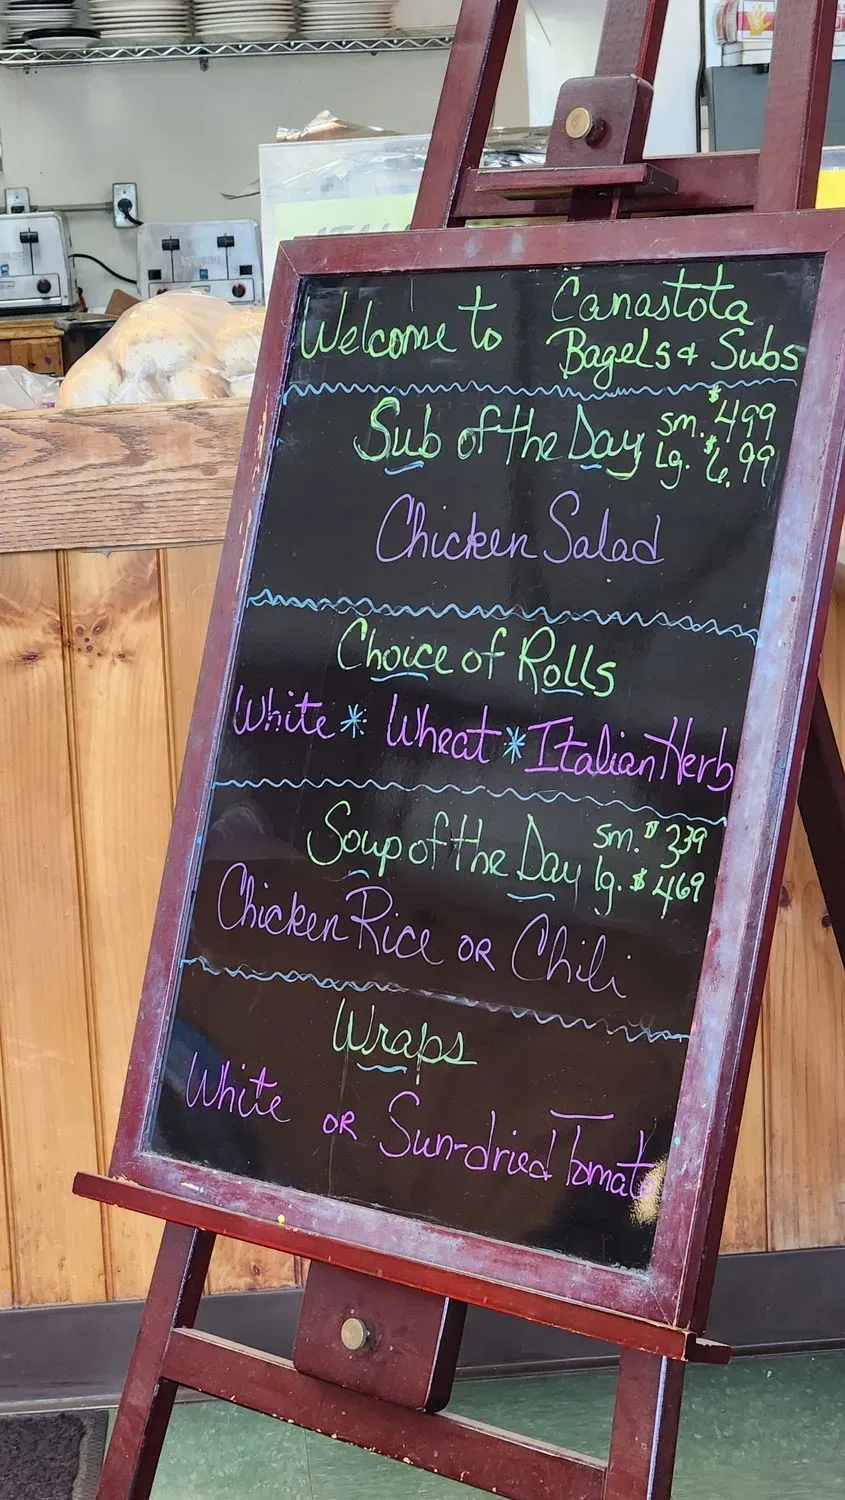 Welcome to Canastota
Bagels & Subs
Sub of the Day sm. $4.99
Lg. $6.99
Chicken Salad
Choice of Rolls
White * Wheat * Italian Herb
Soup of the Day sm. $3.39
lg. $4.69
Chicken Rice OR Chili
Wraps
White OR Sun-dried Tomato